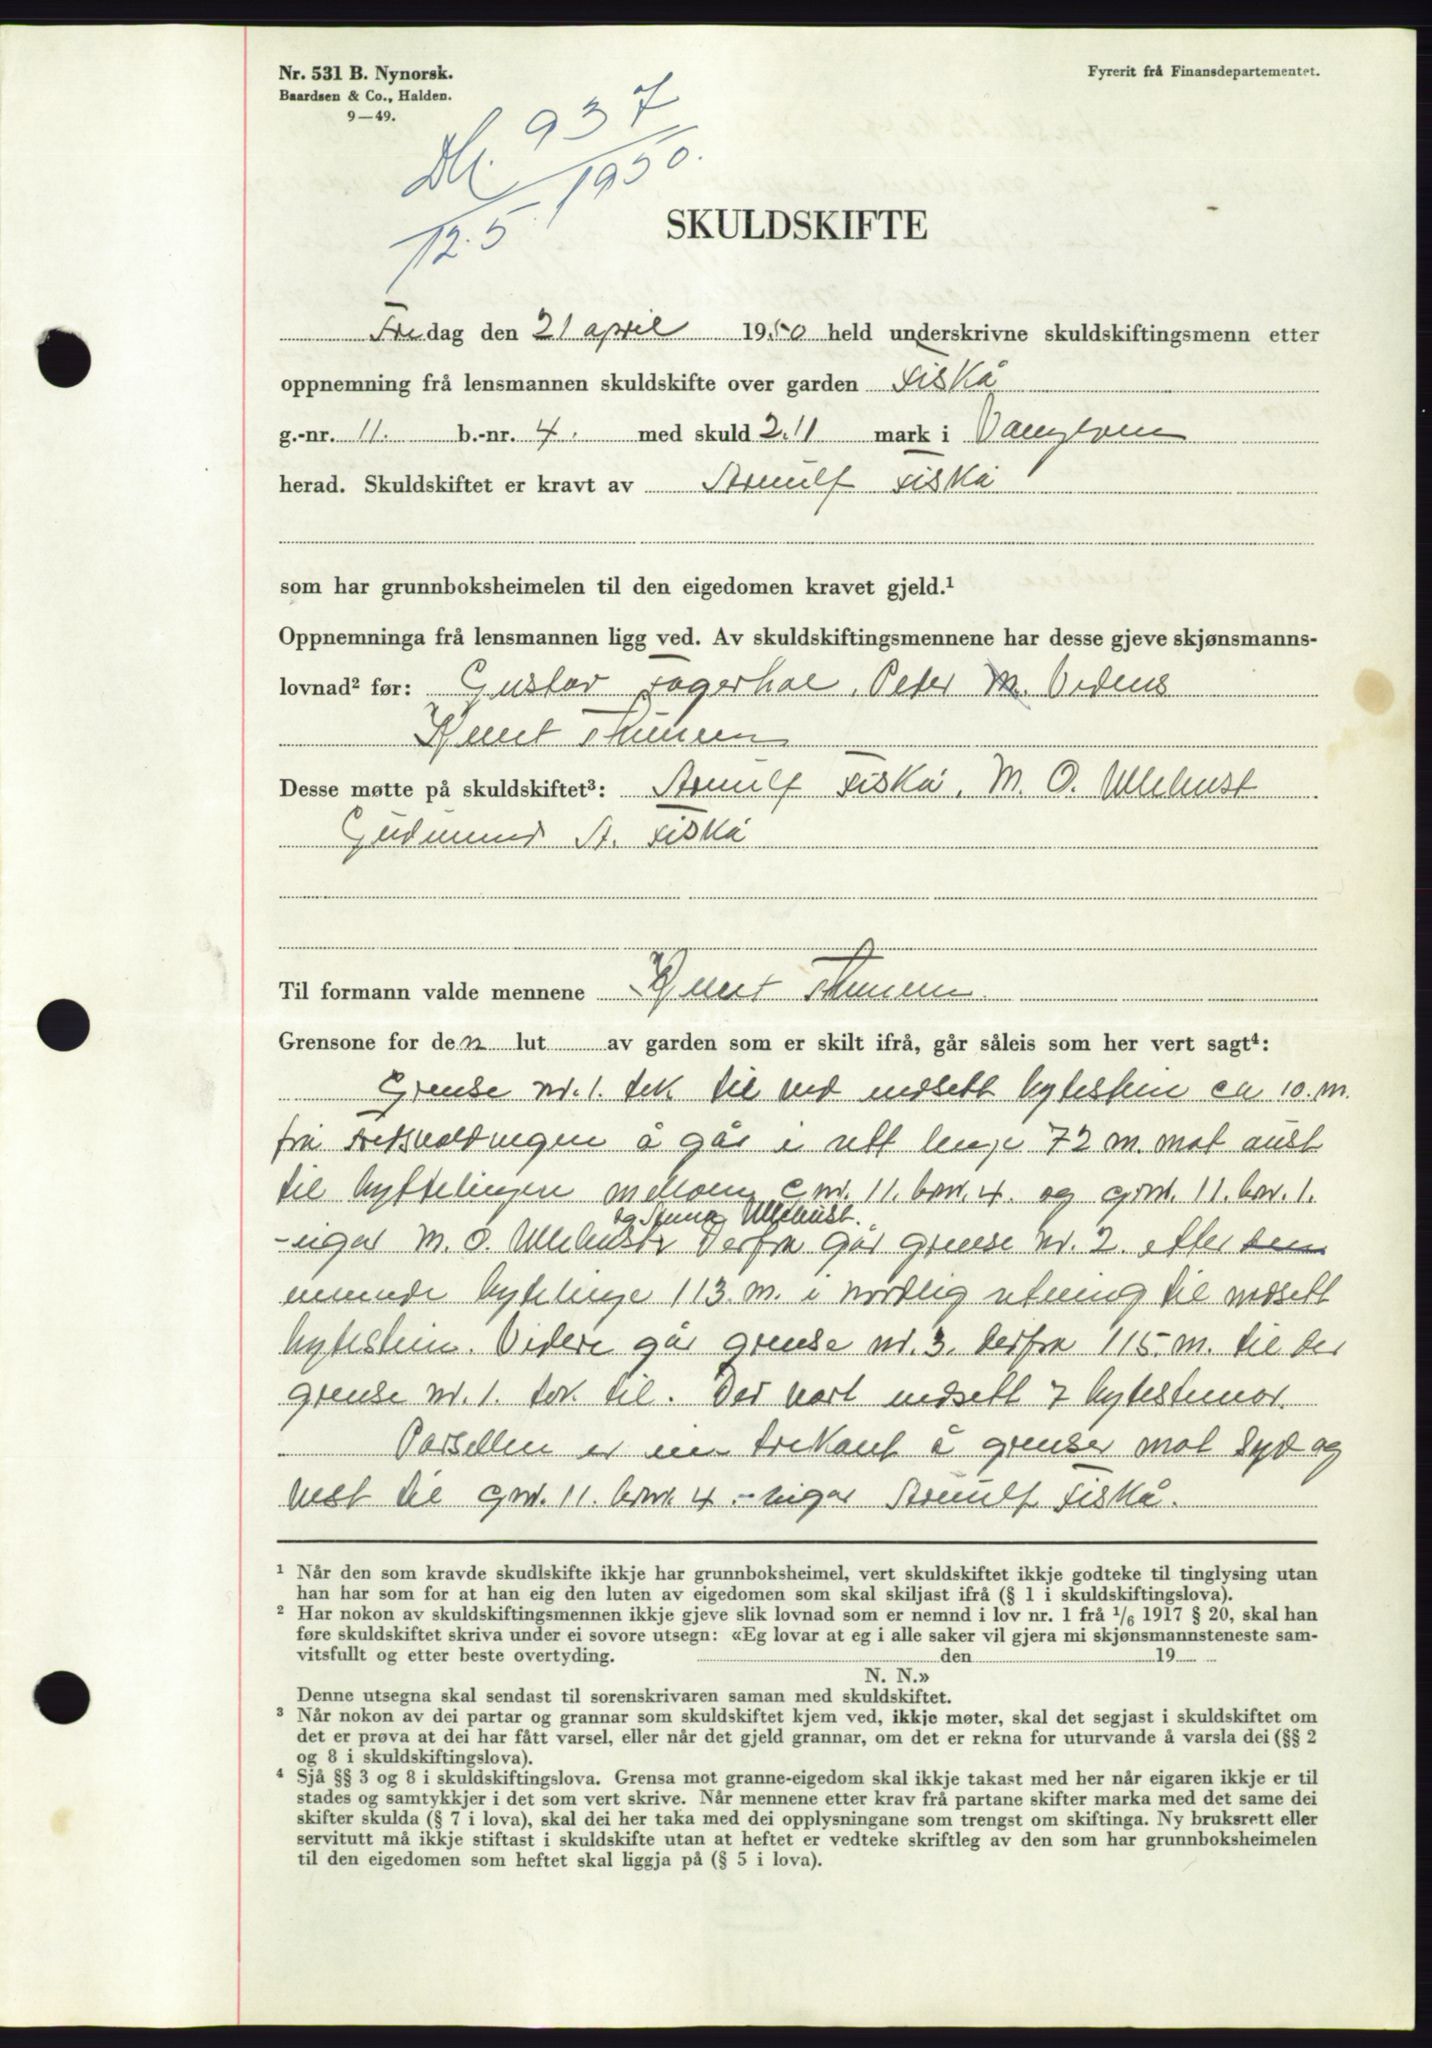 Nr. 531 B. Nynorsk.
Baardsen & Co., Halden.
9—49.
Fyrerit frå Finansdepartementet.
Db. 937/1950.
12.5
SKULDSKIFTE
Fredag den 21 april 1950 held underskrivne skuldskiftingsmenn etter
oppnemning frå lensmannen skuldskifte over garden Fiskå
g.-nr. 11. b.-nr. 4. med skuld 2.11 mark i Vanylven
herad. Skuldskiftet er kravt av Arnulf Fiskå
som har grunnboksheimelen til den eigedomen kravet gjeld.¹
Oppnemninga frå lensmannen ligg ved. Av skuldskiftingsmennene har desse gjeve skjønsmanns-
lovnad² før: Gustav Fagerhol, Peter M. Vedeus
Knut Thunem
Desse møtte på skuldskiftet³: Arnulf Fiskå, M. O. Ulehust
Gudmund A. Fiskå
Til formann valde mennene Knut Thunem
Grensone for den lut av garden som er skilt ifrå, går såleis som her vert sagt⁴:
Grense nr. 1. tek til ved nedsett bytestein ca 10. m.
frå å går i rett linje 72 m. mot aust
til byttelinjen mellom gnr. 11. bnr. 4. og gnr. 11. bnr. 1.
og Anna Ulehust.
-eigar M. O. Ulehust Derfra går grense nr. 2. etter
bytelinje 113. m. i nordlig retning til nedsett
bytestein. Videre går grense nr. 3. derfra 115. m. til der
grense nr. 1. tok til. Der vart nedsett 7 bytesteinar.
Parsellen er ein trekant å grenser mot syd og
vest til gnr. 11. bnr. 4. - eigar Arnulf Fiskå.
¹ Når den som kravde skudlskifte ikkje har grunnboksheimel, vert skuldskiftet ikkje godteke til tinglysing utan
han har som for at han eig den luten av eigedomen som skal skiljast ifrå (§ 1 i skuldskiftingslova).
² Har nokon av skuldskiftingsmennen ikkje gjeve slik lovnad som er nemnd i lov nr. 1 frå 1/6 1917 § 20, skal han
føre skuldskiftet skriva under ei sovore utsegn: «Eg lovar at eg i alle saker vil gjera mi skjønsmannsteneste sam-
vitsfullt og etter beste overtyding. den 19
N. N.»
Denne utsegna skal sendast til sorenskrivaren saman med skuldskiftet.
³ Når nokon av dei partar og grannar som skuldskiftet kjem ved, ikkje møter, skal det segjast i skuldskiftet om
det er prøva at dei har fått varsel, eller når det gjeld grannar, om det er rekna for uturvande å varsla dei (§§ 2
og 8 i skuldskiftingslova).
⁴ Sjå §§ 3 og 8 i skuldskiftingslova. Grensa mot granne-eigedom skal ikkje takast med her når eigaren ikkje er til
stades og samtykkjer i det som vert skrive. Når mennene etter krav frå partane skifter marka med det same dei
skifter skulda (§ 7 i lova), skal dei her taka med dei opplysningane som trengst om skiftinga. Ny bruksrett eller
servitutt må ikkje stiftast i skuldskifte utan at heftet er vedteke skriftleg av den som har grunnboksheimelen
til den eigedomen som heftet skal liggja på (§ 5 i lova).